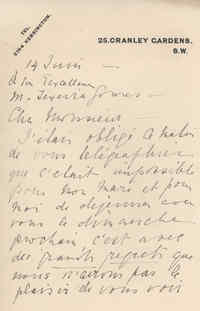 TEL.
2104 KENSINGTON.
25, CRANLEY GARDENS.
S.W.
14 Juin —
à Son Excellence
M. Teixeira Gomes —
Cher Monsieur —
J'étais obligé ce matin
de vous télégraphier
que c'était impossible
pour mon mari et pour
moi de déjeuner avec
vous le dimanche
prochain, c'est avec
des grands regrets que
nous n'aurons pas le
plaisir de vous voir